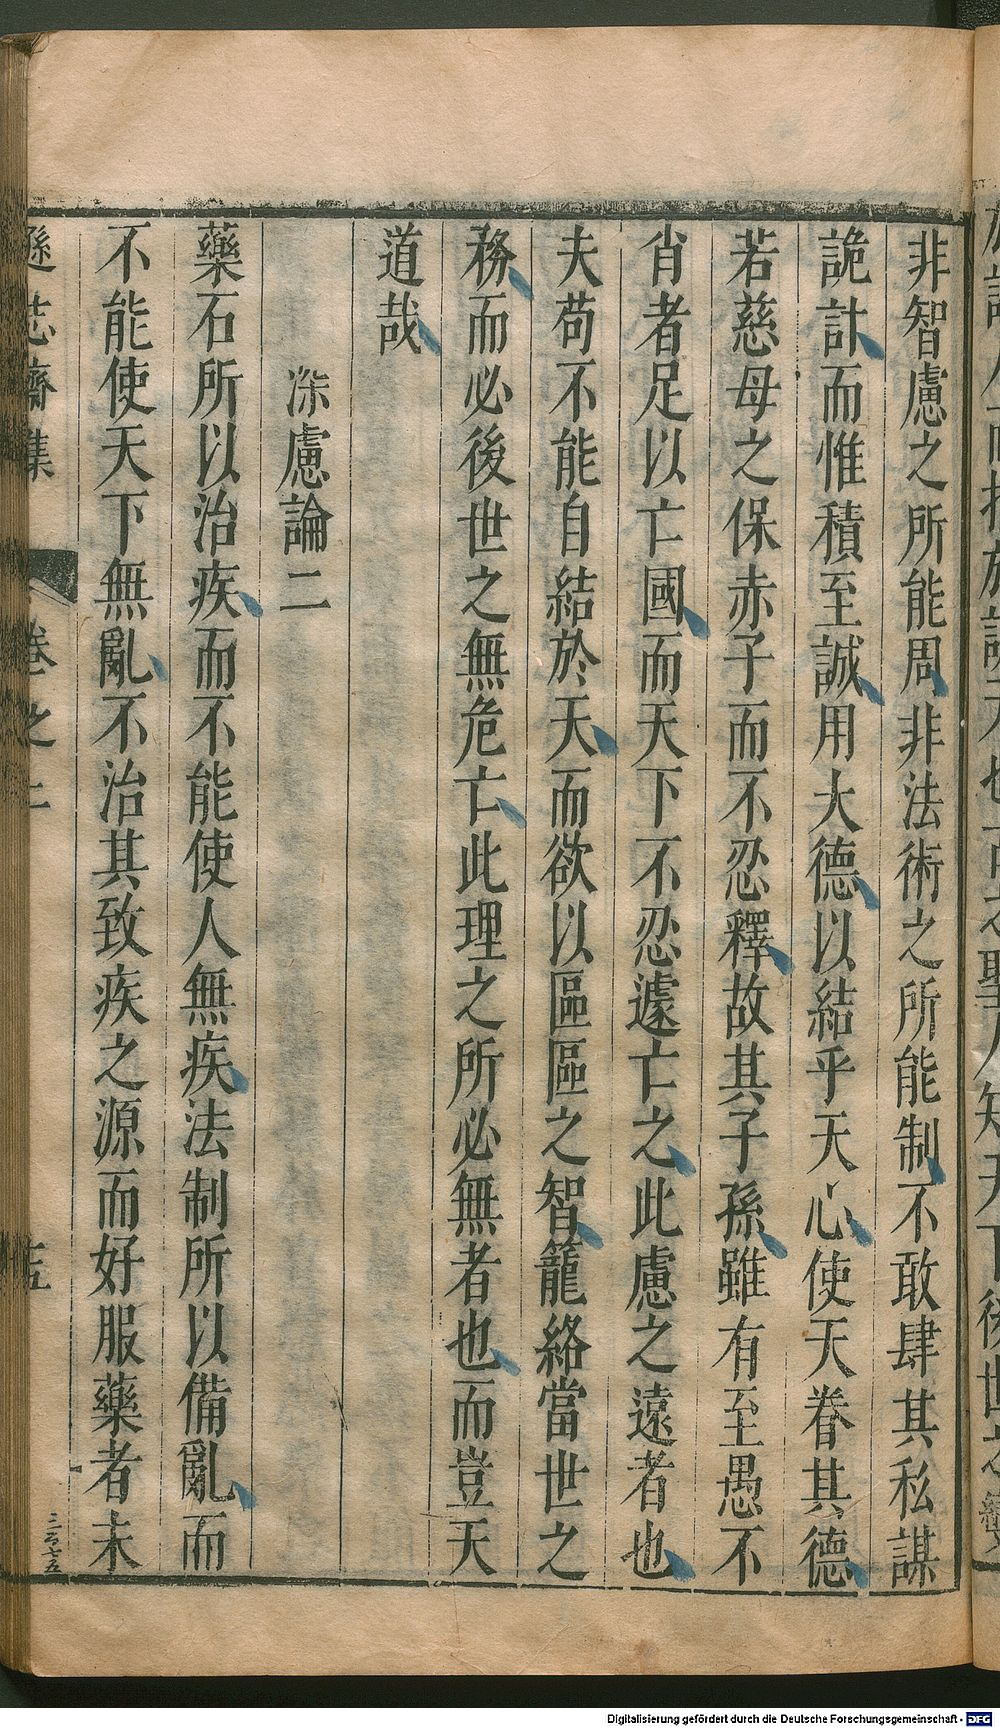 非智慮之所能周非法術之所能制不敢肆其私謀
詭計而惟積至誠用大德以結乎天心使天眷其德
若慈母之保赤子而不忍釋故其子孫雖有至愚不
肖者足以亡國而天下不忍遽亡之此慮之遠者也
夫苟不能自結於天而欲以區區之智籠絡當世之
務而必後世之無危亡此理之所必無者也而豈天
道哉
深慮論二
藥石所以治疾而不能使人無疾法制所以備亂而
不能使天下無亂不治其致疾之源而好服藥者未
遜志齋集
卷之二
Digitalisierung gefördert durch die Deutsche Forschungsgemeinschaft - DFG